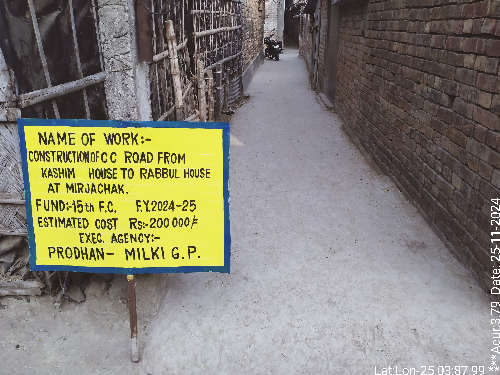 NAME OF WORK:-
CONSTRUCTION OF C C ROAD FROM
KASHIM HOUSE TO RABBUL HOUSE
AT MIRJACHAK.
FUND:-15th F.C. F.Y.2024-25
ESTIMATED COST Rs:-200000/-
EXEC. AGENCY:-
PRODHAN- MILKI G.P.
Lat Lon-25.03:87.99
***Acur:3.79 Date: 25-11-2024